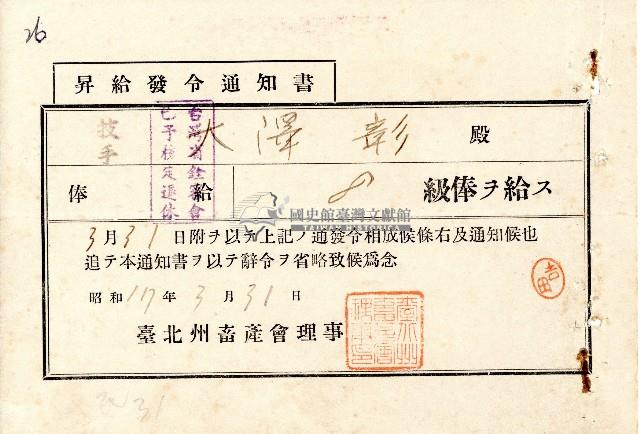 26
昇給發令通知書
技手
大澤彰 殿
台灣省銓審會
已予檢定退休
俸給 8 級俸ヲ給ス
國史館臺灣文獻館
TAIWAN HISTORICA
3月31日附ヲ以テ上記ノ通發令相成候條右及通知候也
追テ本通知書ヲ以テ辭令ヲ省略致候爲念
吉田
昭和17年3月31日
臺北州畜產會理事